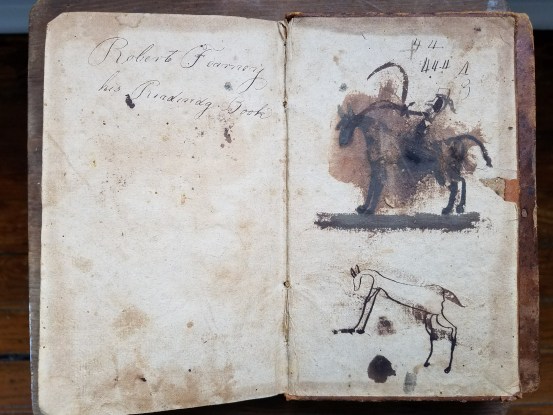 Robert Fearnoy
his Reading Book
44
444 4
3